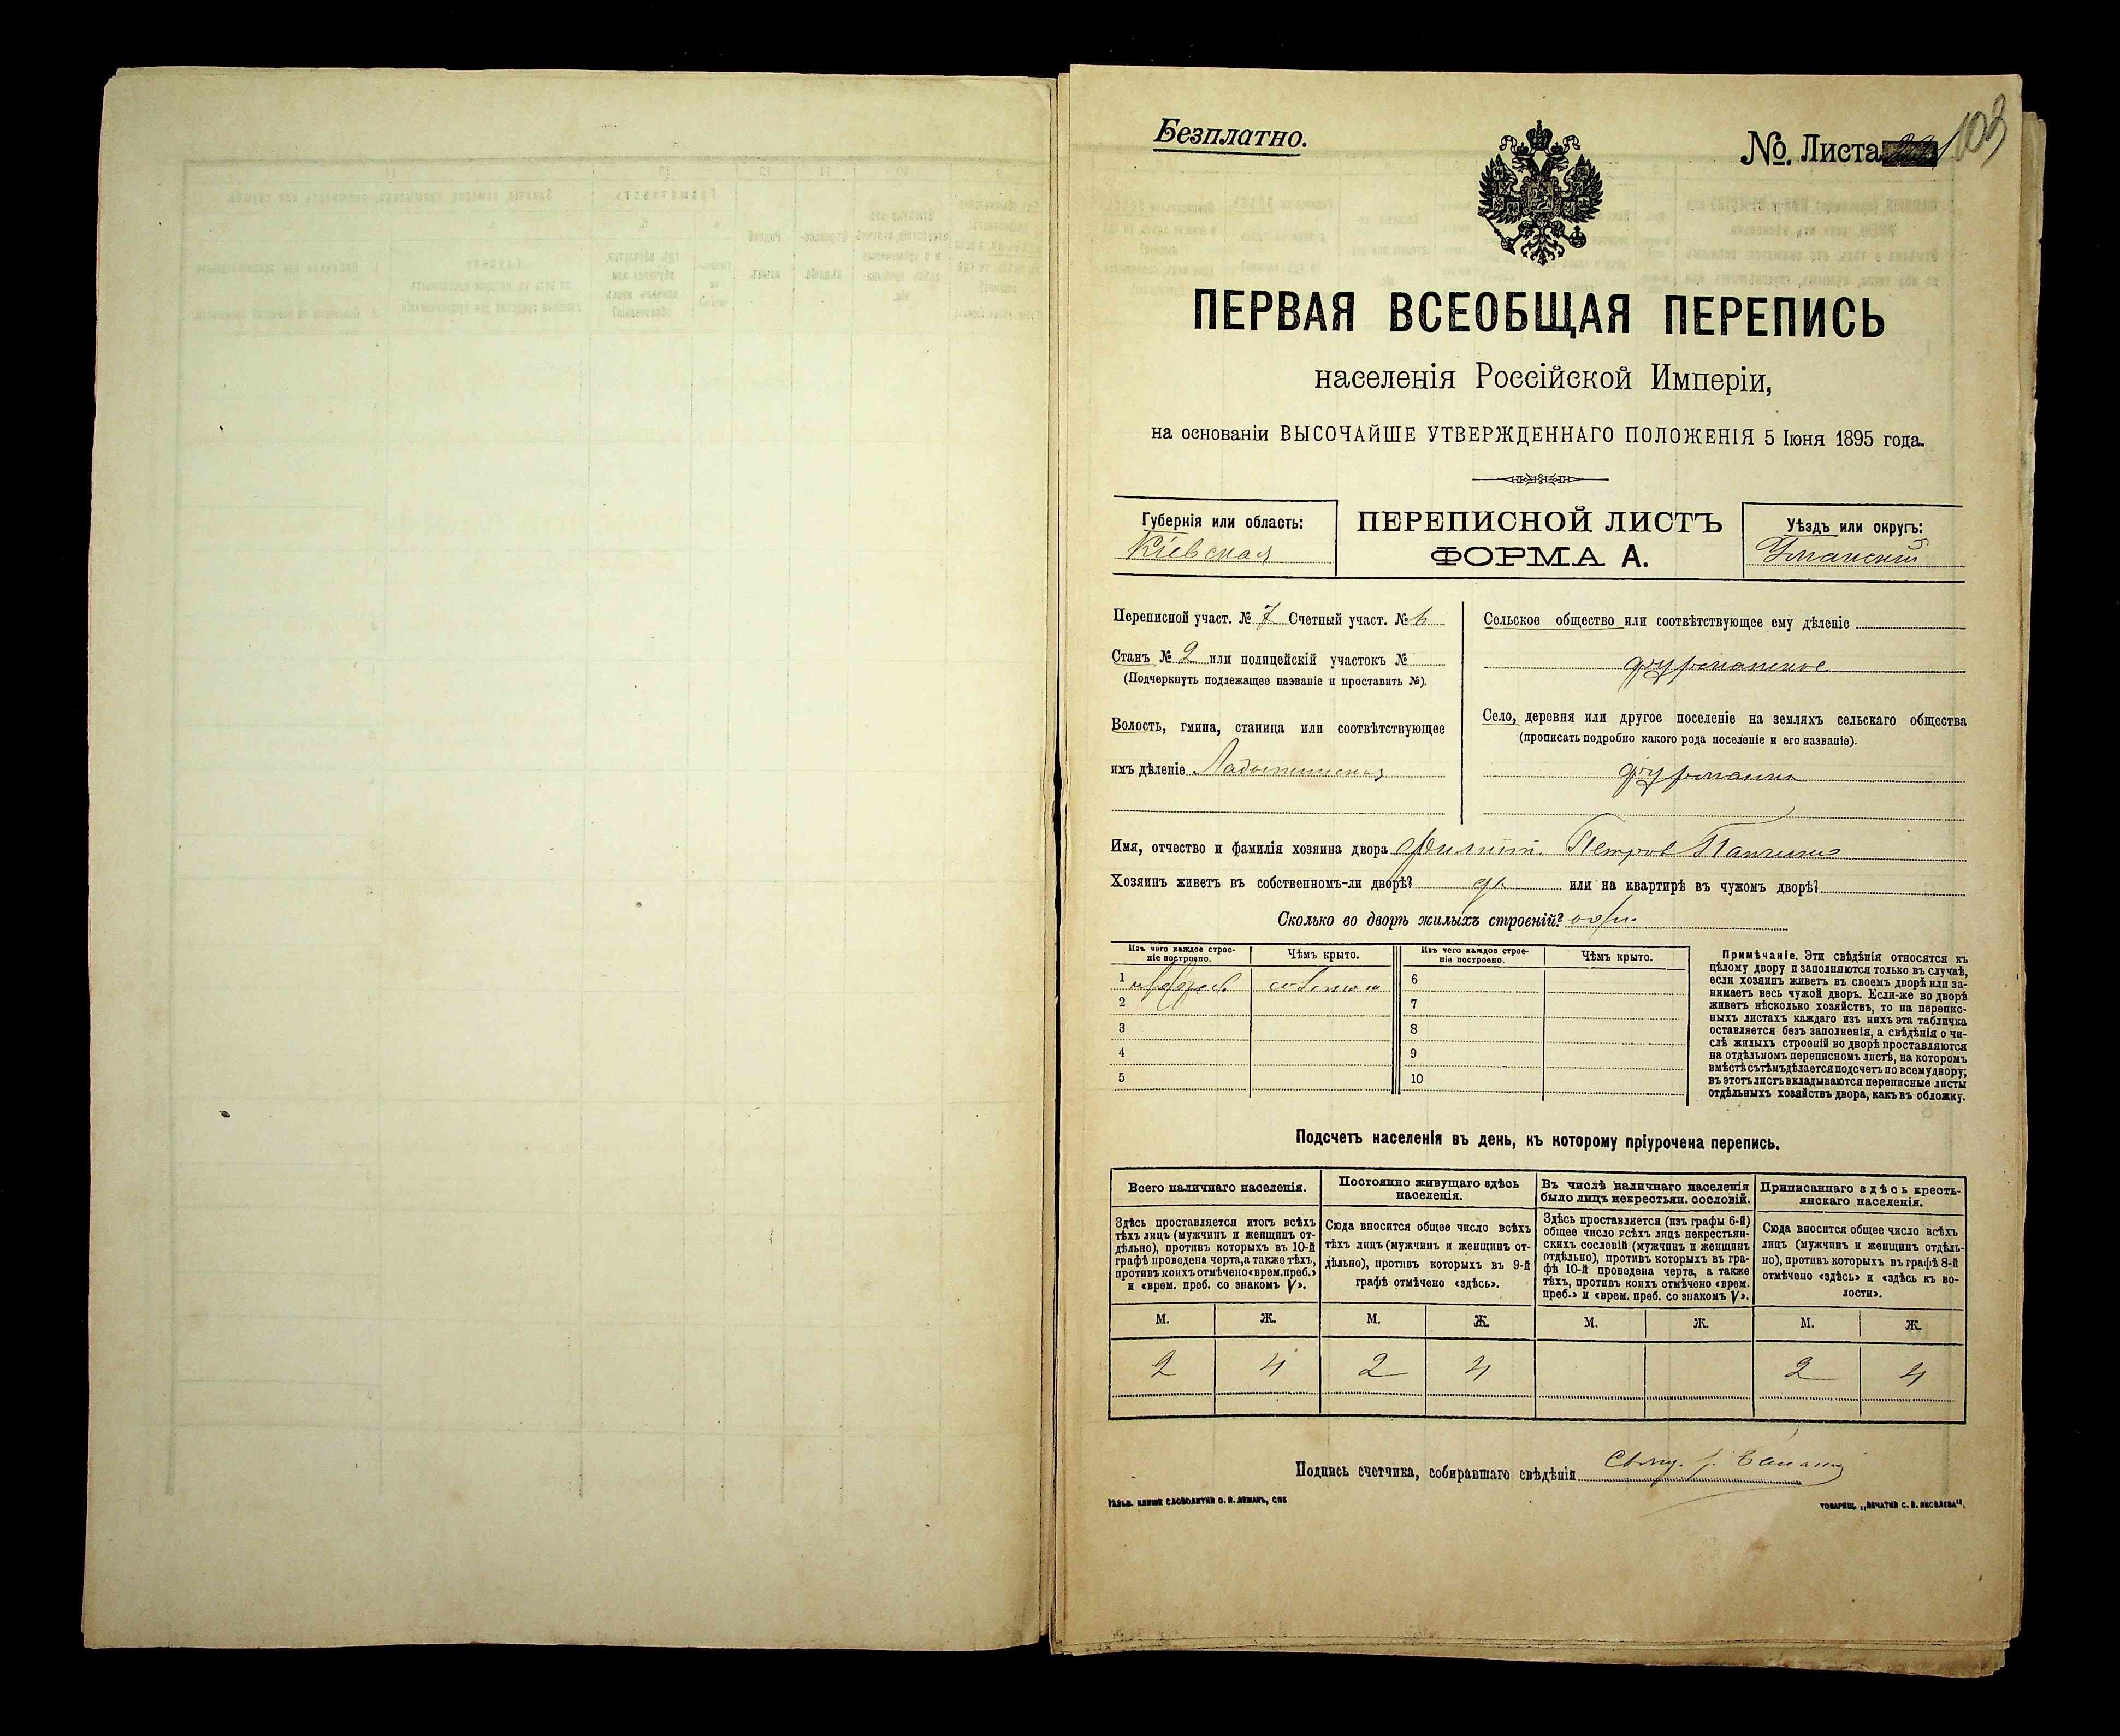 Безплатно.
№. Листа
103
ПЕРВАЯ ВСЕОБЩАЯ ПЕРЕПИСЬ
населенія Россійской Имперіи,
на основаніи ВЫСОЧАЙШЕ УТВЕРЖДЕННАГО ПОЛОЖЕНІЯ 5 Іюня 1895 года.
Губернія или область:
Кіевская
ПЕРЕПИСНОЙ ЛИСТЪ
ФОРМА А.
Уѣздъ или округъ:
Уманскій
Переписной участ. № 7 Счетный участ. № 6
Станъ № 2 или полицейскій участокъ №
(Подчеркнуть подлежащее названіе и проставить №).
Волость, гмина, станица или соотвѣтствующее
имъ дѣленіе Ладыжинская
Сельское общество или соотвѣтствующее ему дѣленіе
фурманское
Село, деревня или другое поселеніе на земляхъ сельскаго общества
(прописать подробно какого рода поселеніе и его названіе).
фурманка
Имя, отчество и фамилія хозяина двора Филипп Петров
Хозяинъ живетъ въ собственномъ-ли дворѣ? да или на квартирѣ въ чужомъ дворѣ?
Сколько во дворѣ жилыхъ строеній? один
Изъ чего каждое строе-
ніе построено.
Чѣмъ крыто.
Изъ чего каждое строе-
ніе построено.
Чѣмъ крыто.
1 соломою 6
2 7
3 8
4 9
5 10
Примѣчаніе. Эти свѣдѣнія относятся къ
цѣлому двору и заполняются только въ случаѣ,
если хозяинъ живетъ въ своемъ дворѣ или за-
нимаетъ весь чужой дворъ. Если-же во дворѣ
живетъ нѣсколько хозяйствъ, то на перепис-
ныхъ листахъ каждаго изъ нихъ эта табличка
оставляется безъ заполненія, а свѣдѣнія о чи-
слѣ жилыхъ строеній во дворѣ проставляются
на отдѣльномъ переписномъ листѣ, на которомъ
вмѣстѣ съ тѣмъ дѣлается подсчетъ по всему двору;
въ этотъ листъ вкладываются переписные листы
отдѣльныхъ хозяйствъ двора, какъ въ обложку.
Подсчетъ населенія въ день, къ которому пріурочена перепись.
Всего наличнаго населенія.
Здѣсь проставляется итогъ всѣхъ
тѣхъ лицъ (мужчинъ и женщинъ от-
дѣльно), противъ которыхъ въ 10-й
графѣ проведена черта, а также тѣхъ,
противъ коихъ отмѣчено «врем. преб.»
и «врем. преб. со знакомъ V».
Постоянно живущаго здѣсь
населенія.
Сюда вносится общее число всѣхъ
тѣхъ лицъ (мужчинъ и женщинъ от-
дѣльно), противъ которыхъ въ 9-й
графѣ отмѣчено «здѣсь».
Въ числѣ наличнаго населенія
было лицъ некрестьян. сословій.
Здѣсь проставляется (изъ графы 6-й)
общее число всѣхъ лицъ некрестьян-
скихъ сословій (мужчинъ и женщинъ
отдѣльно), противъ которыхъ въ гра-
фѣ 10-й проведена черта, а также
тѣхъ, противъ коихъ отмѣчено «врем.
преб.» и «врем. преб. со знакомъ V».
Приписаннаго здѣсь кресть-
янскаго населенія.
Сюда вносится общее число всѣхъ
лицъ (мужчинъ и женщинъ отдѣль-
но), противъ которыхъ въ графѣ 8-й
отмѣчено «здѣсь» и «здѣсь къ во-
лости».
М. Ж. М. Ж. М. Ж. М. Ж.
2 4 2 4 2 4
Подпись счетчика, собиравшаго свѣдѣнія
ГАЛЬВ. КЛИШЕ СЛОВОЛИТНИ О. И. ЛЕМАНЪ, СПБ
ТОВАРИЩ. „ПЕЧАТНЯ С. П. ЯКОВЛЕВА“.